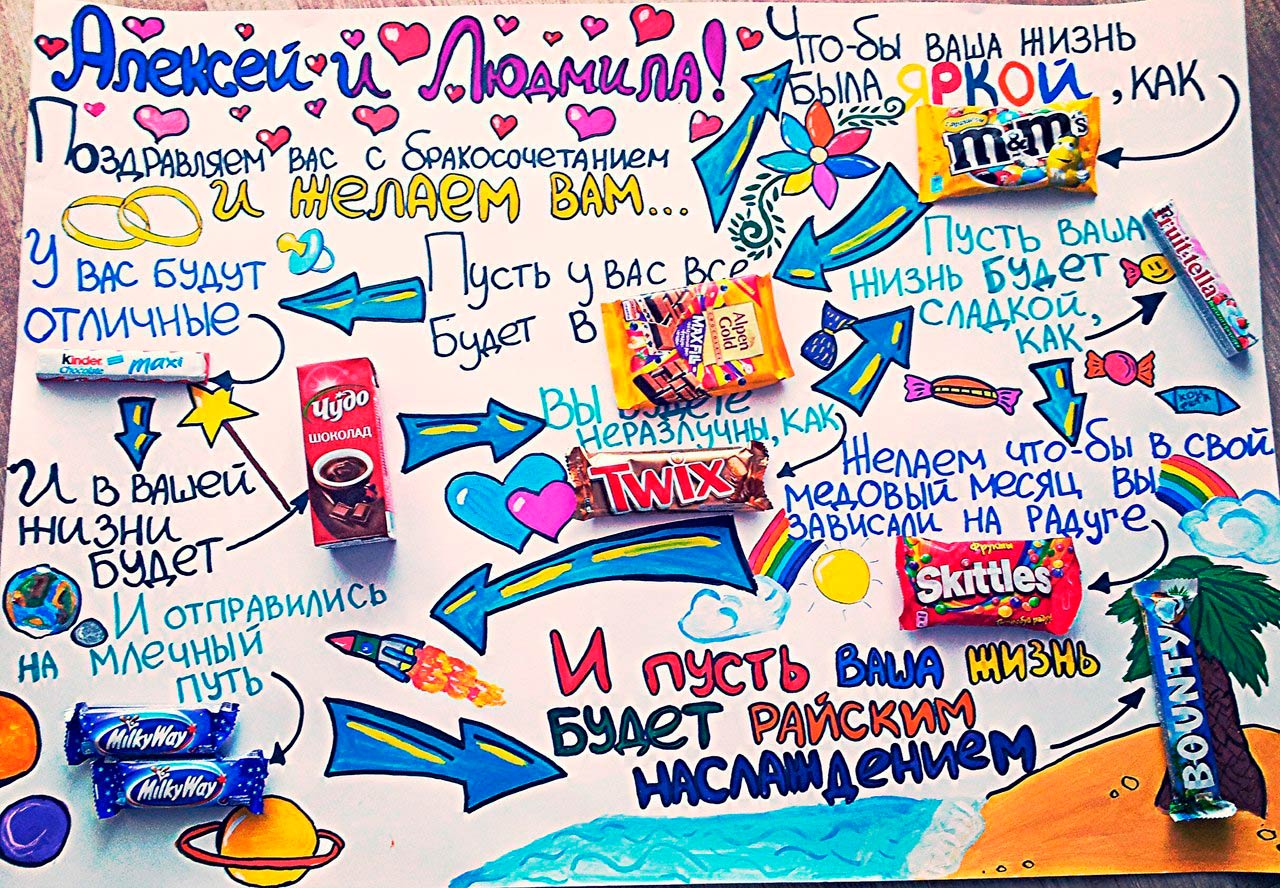 Алексей и Людмила!
Поздравляем вас с бракосочетанием
и желаем вам...
Что-бы ваша жизнь
была яркой, как
m&m's
Пусть у вас все
будет в
Alpen
Gold
MAX FUN
У вас будут
отличные
kinder
Chocolate
maxi
И в вашей
жизни
будет
Чудо
ШОКОЛАД
Вы будете
неразлучны, как
TWIX
Пусть ваша
жизнь будет
сладкой,
как
Fruit-tella
Желаем что-бы в свой
медовый месяц вы
зависали на радуге
Фрукты
Skittles
И отправились
на млечный
путь
MilkyWay
MilkyWay
И пусть ваша жизнь
будет райским
наслаждением
BOUNTY